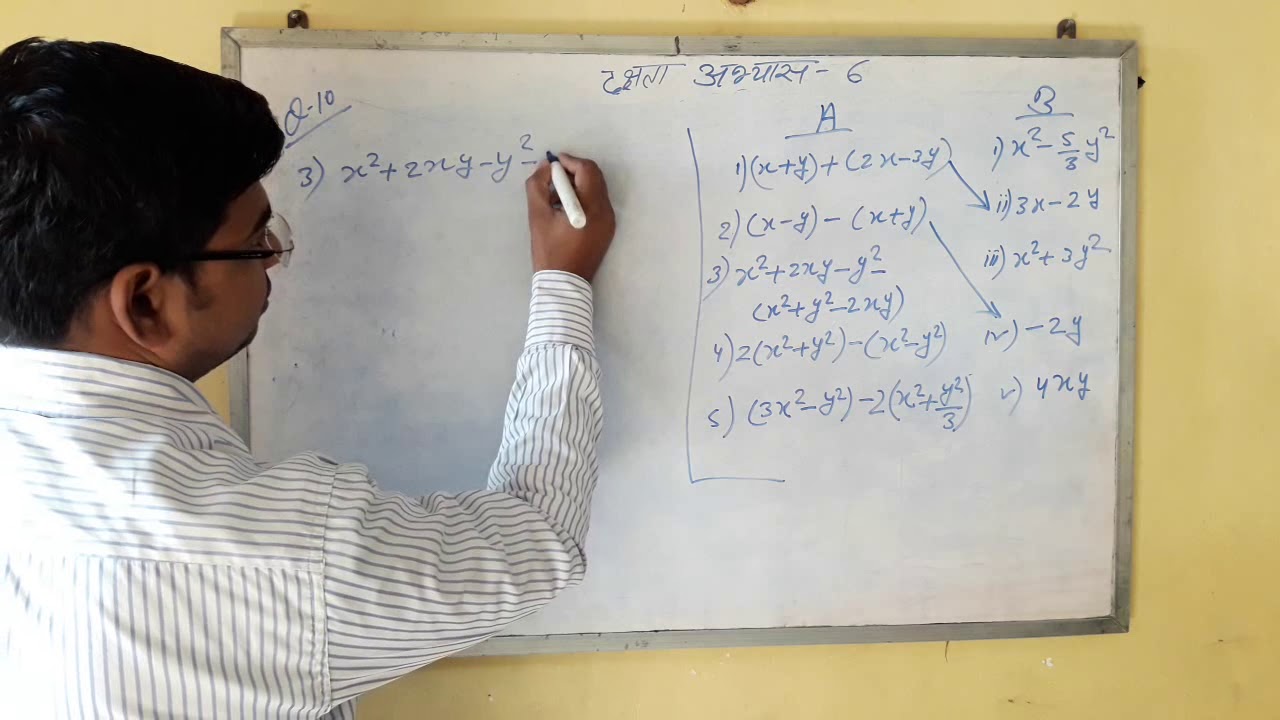 दक्षता अभ्यास - 6
Q-10
3) x² + 2xy - y² -
A
1) (x+y) + (2x-3y)
2) (x-y) - (x+y)
3) x² + 2xy - y² -
(x² + y² - 2xy)
4) 2(x² + y²) - (x² - y²)
5) (3x² - y²) - 2(x² + y²/3)
B
i) x² - 5/3 y²
ii) 3x - 2y
iii) x² + 3y²
iv) - 2y
v) 4xy